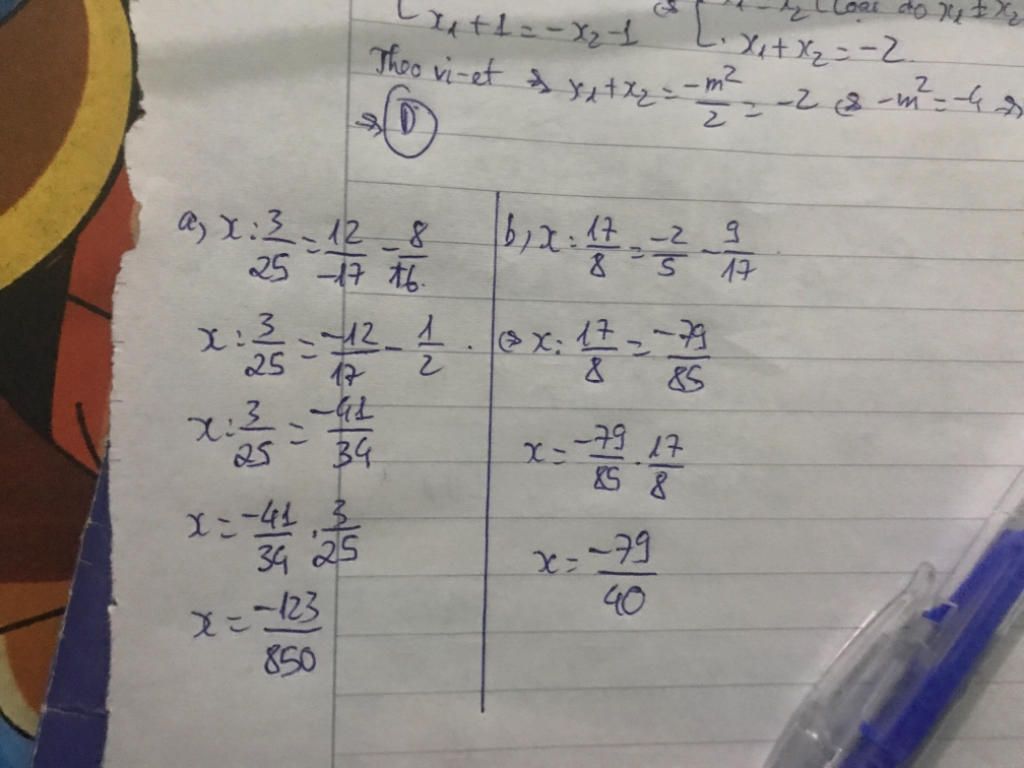 x₁+1=-x₂-1
x₁+x₂=-2
Theo vi-et ⇒ x₁+x₂ = -m²/2 = -2 ⇔ -m²=-4 ⇒
⇒ D
a, x : 3/25 = 12/-17 - 8/16
x : 3/25 = -12/17 - 1/2
x : 3/25 = -41/34
x = -41/34 . 3/25
x = -123/850
b, x : 17/8 = -2/5 - 9/17
⇔ x : 17/8 = -79/85
x = -79/85 . 17/8
x = -79/40